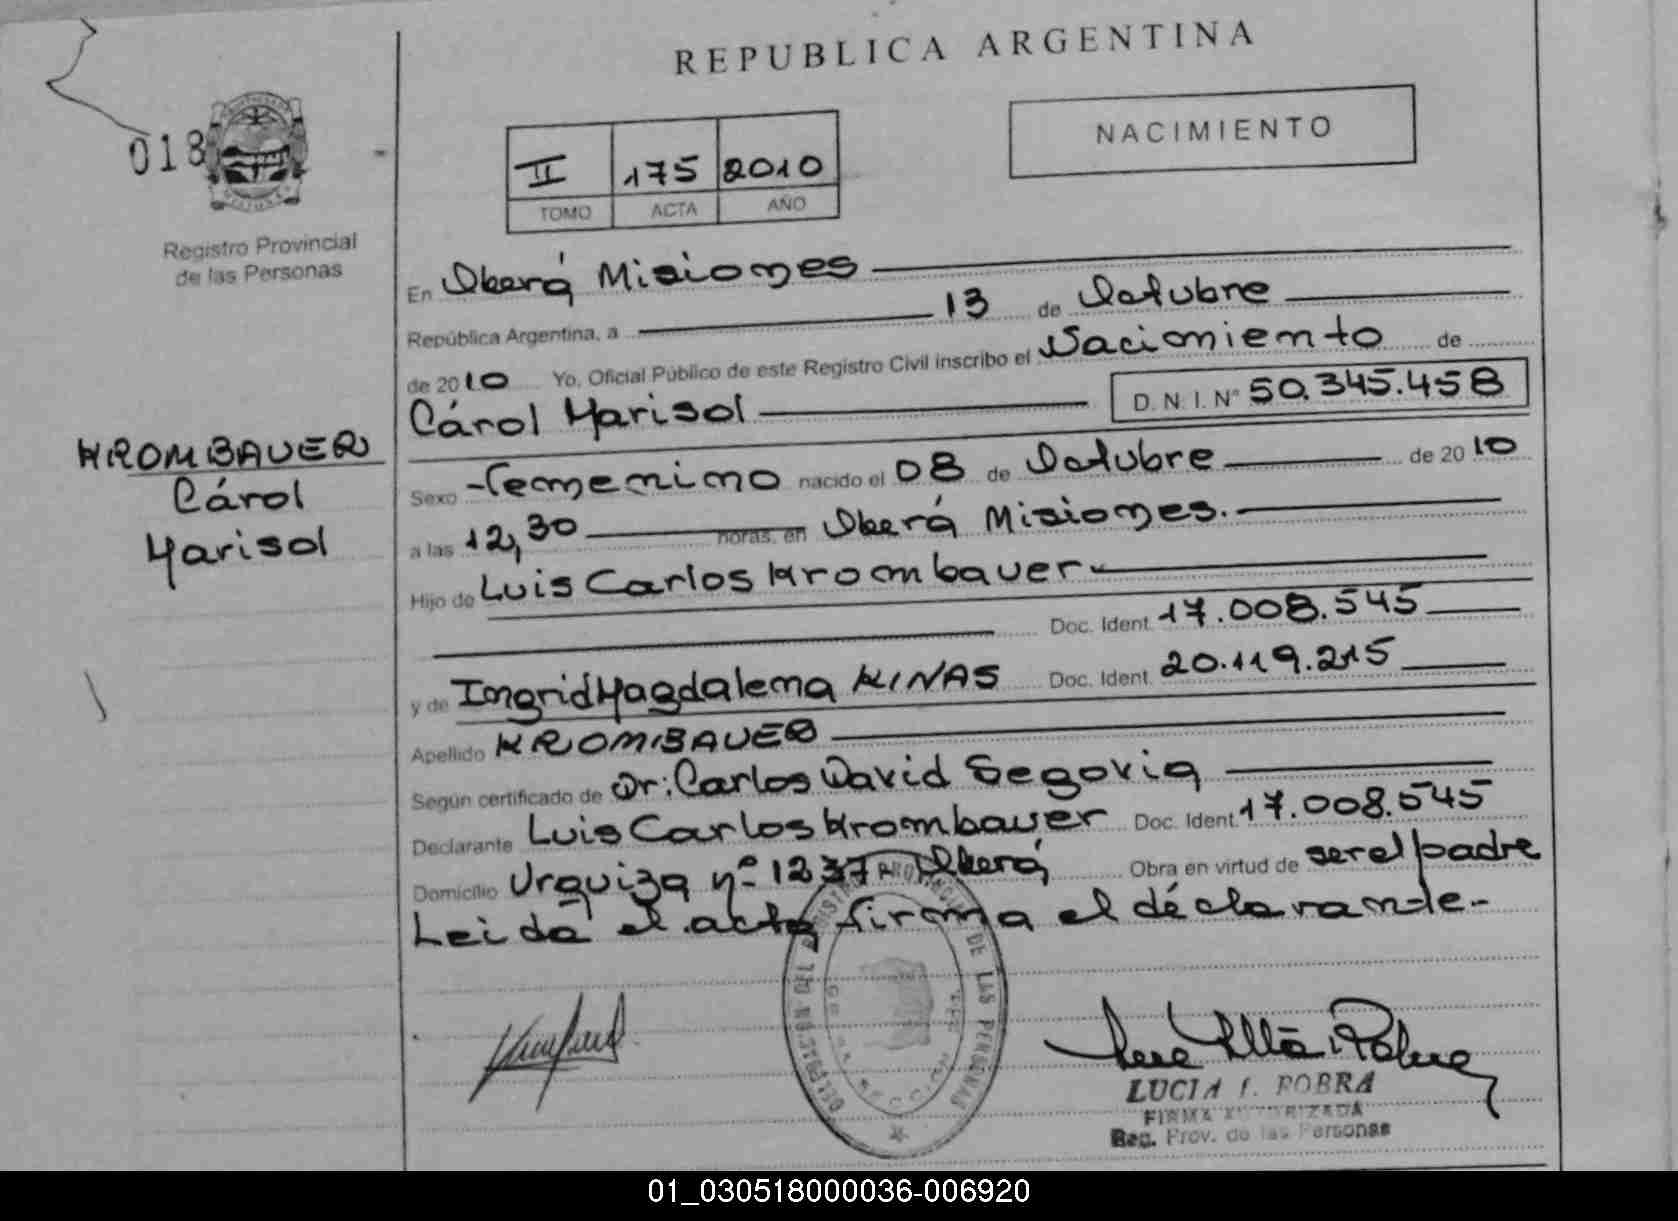 REPUBLICA ARGENTINA
018
Registro Provincial
de las Personas
II 175 2010
TOMO ACTA AÑO
NACIMIENTO
En Oberá Misiones
República Argentina, a 13 de Octubre
de 2010 Yo, Oficial Público de este Registro Civil inscribo el Nacimiento de
Cárol Marisol D. N. I. Nº 50.345.458
KROMBAUER
Cárol
Marisol
Sexo Femenino nacido el 08 de Octubre de 2010
a las 12,30 horas, en Oberá Misiones.
Hijo de Luis Carlos Krombauer
Doc. Ident. 17.008.545
y de Ingrid Magdalena KINAS Doc. Ident. 20.119.215
Apellido KROMBAUER
Según certificado de Dr: Carlos David Segovia
Declarante Luis Carlos Krombauer Doc. Ident. 17.008.545
Domicilio Urquiza nº 1237 Oberá Obra en virtud de ser el padre
Leida el acta firma el déclarante.-
DEL REGISTRO PROVINCIAL DE LAS PERSONAS
LUCIA I. ROBRA
FIRMA AUTORIZADA
Reg. Prov. de las Personas
01_030518000036-006920